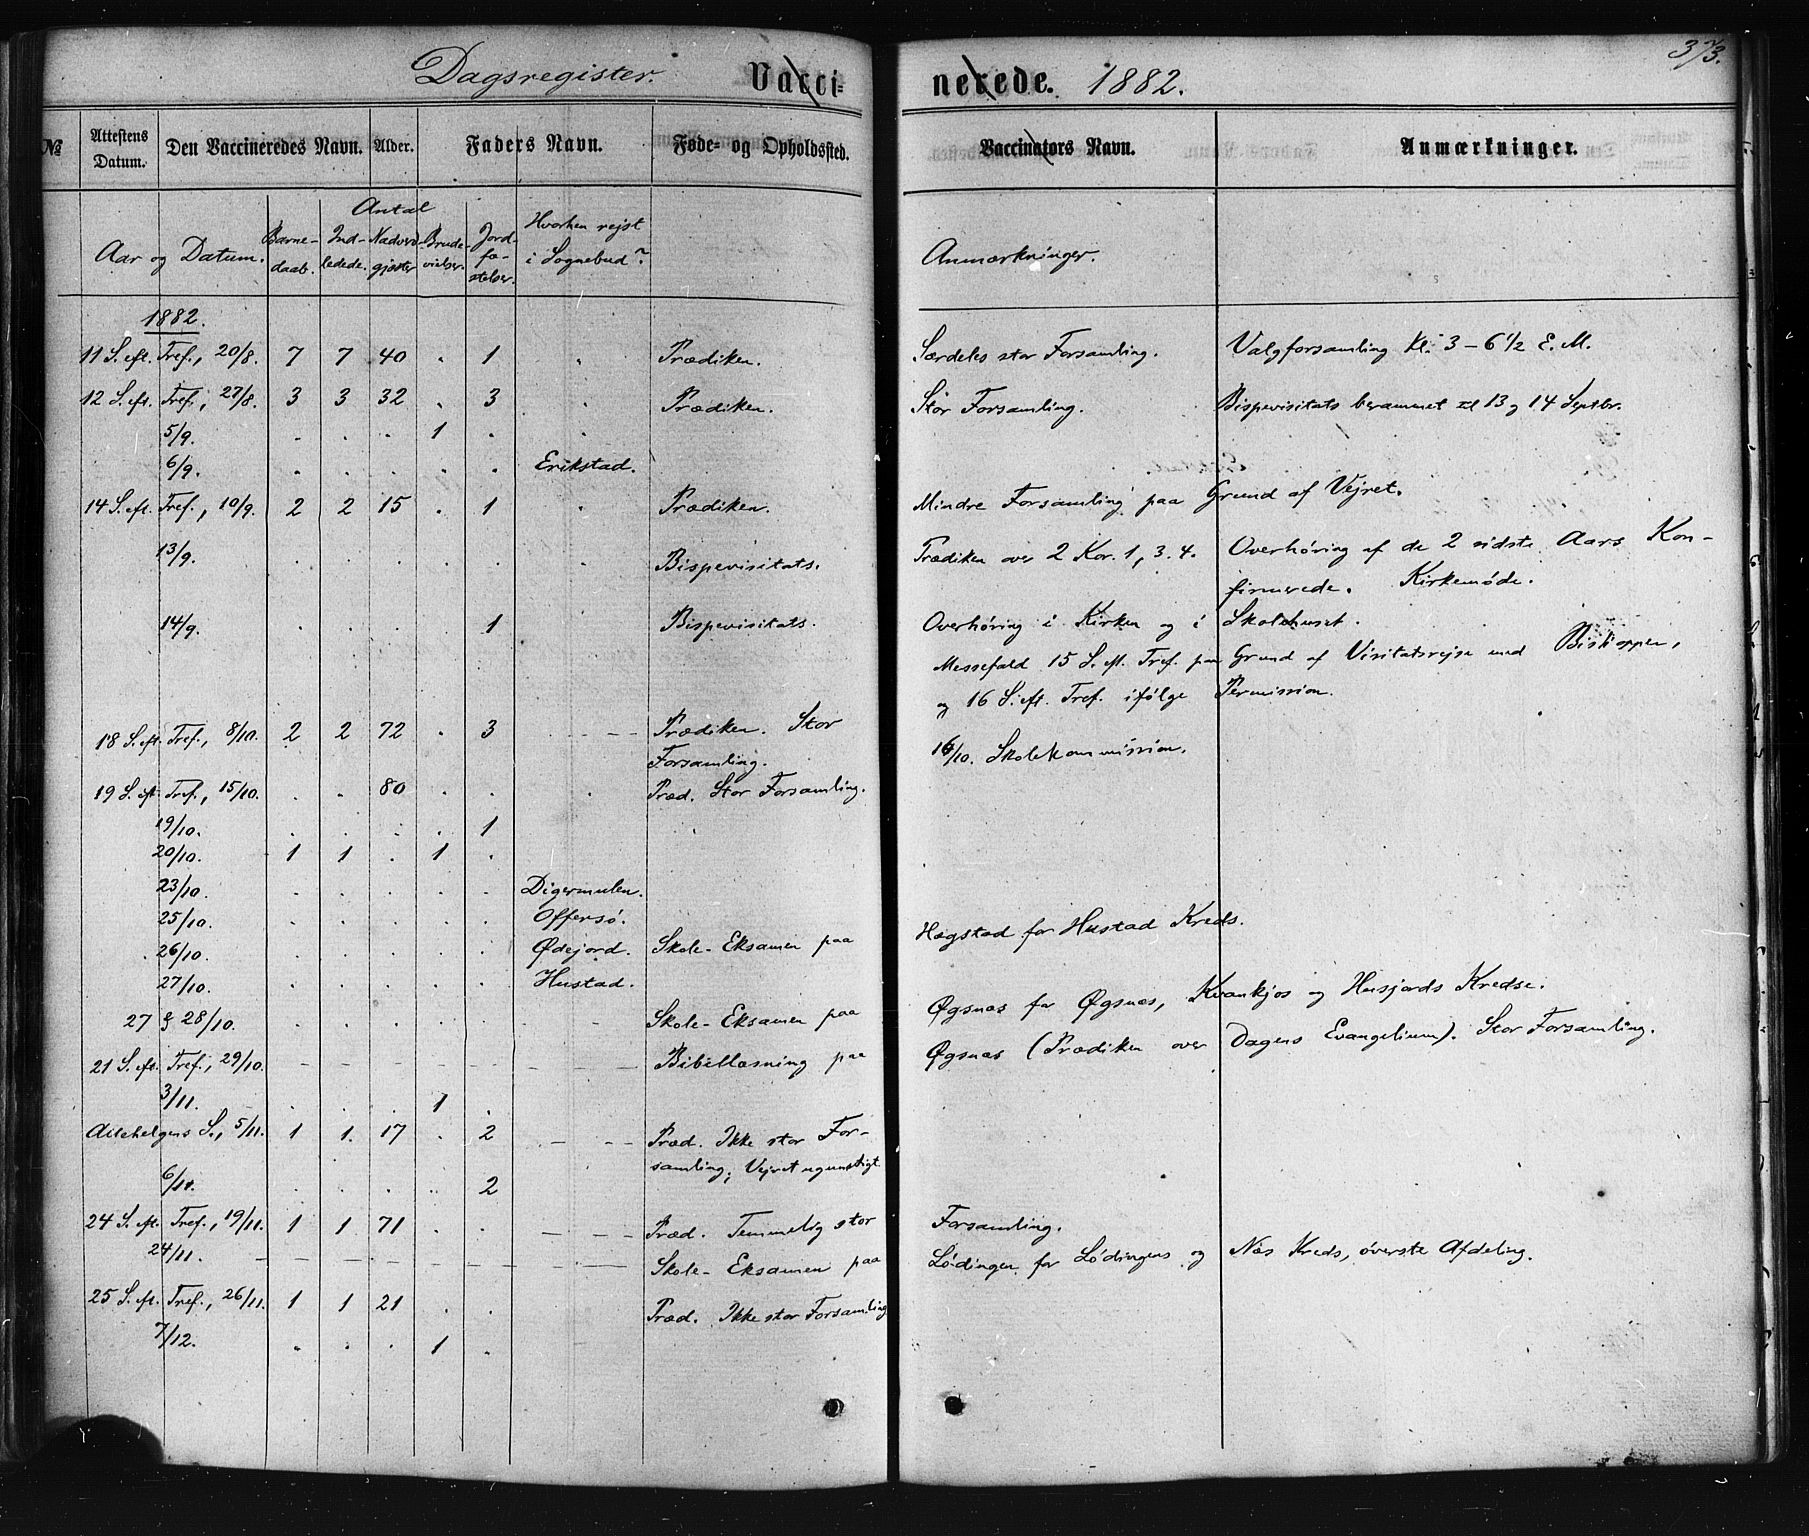 373.
Dagsregister. Vacci=nerede. 1882.
№ Attestens Datum. Den Vaccineredes Navn. Alder. Faders Navn. Føde- og Opholdssted. Vaccinators Navn. Anmærkninger.
Antal
Aar og Datum. Barne-daab. Ind-ledede. Nadverd-gjæster Brude-vielser. Jord-fæ-stelser. Hvorhen rejst i Sognebud? Anmærkninger.
1882.
11 S. eft. Tref., 20/8. 7 7 40 . 1 . Prædiken. Særdeles stor Forsamling. Valgforsamling Kl. 3 – 6 1/2 E. M.
12 S. eft. Tref., 27/8. 3 3 32 . 3 . Prædiken. Stor Forsamling. Bispevisitats berammet til 13 og 14 Septbr.
5/9. . . . 1 . .
6/9. . . . . . Erikstad.
14 S. eft. Tref., 10/9. 2 2 15 . 1 . Prædiken. Mindre Forsamling paa Grund af Vejret.
13/9. . . . . . . Bispevisitats. Prædiken over 2 Kor. 1, 3. 4. Overhøring af de 2 sidste Aars Kon-
firmerede. Kirkemøde.
14/9. . . . . 1 Bispevisitats. Overhøring i Kirken og i Skolehuset.
Messefald 15 S. eft. Tref. paa Grund af Visitatsrejse med Biskoppen,
og 16 S. eft. Tref. ifølge Permission.
18 S. eft. Tref., 8/10. 2 2 72 . 3 - - - Prædiken. Stor
Forsamling. 16/10. Skolekommission.
19 S. eft. Tref., 15/10. . . 80 . . . Præd. Stor Forsamling.
19/10. . . . . 1
20/10. 1 1 . 1 .
23/10. . . . . . Digermulen.
25/10. . . . . . Offersø.
26/10. . . . . . Ødejord. Skole-Eksamen paa Hægstad for Hustad Kreds.
27/10. . . . . . Hustad.
27 & 28/10. . . . . . - Skole-Eksamen paa Øgsnæs for Øgsnæs, Kvankjos og Husjords Kredse.
21 S. eft. Tref., 29/10. - - - - - - - Bibellæsning paa Øgsnæs (Prædiken over Dagens Evangelium). Stor Forsamling.
3/11. . . . 1 .
Allehelgens S., 5/11. 1 1. 17 . 2 - - - Præd. Ikke stor For-
samling; Vejret ugunstigt
6/11. . . . . 2
24 S. eft. Tref., 19/11. 1 1 71 . . - - - Præd. Temmelig stor Forsamling.
24/11. - - - - - - - Skole-Eksamen paa Lødingen for Lødingens og Næs Kreds, øverste Afdeling.
25 S. eft. Tref., 26/11. 1 1 21 . . Præd. Ikke stor Forsamling
7/12. . . . 1 .